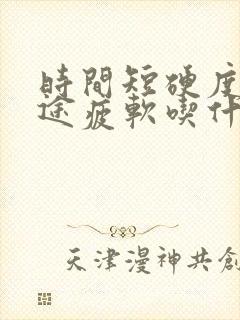 時間短硬度
途疲軟喫什
天津漫神共創